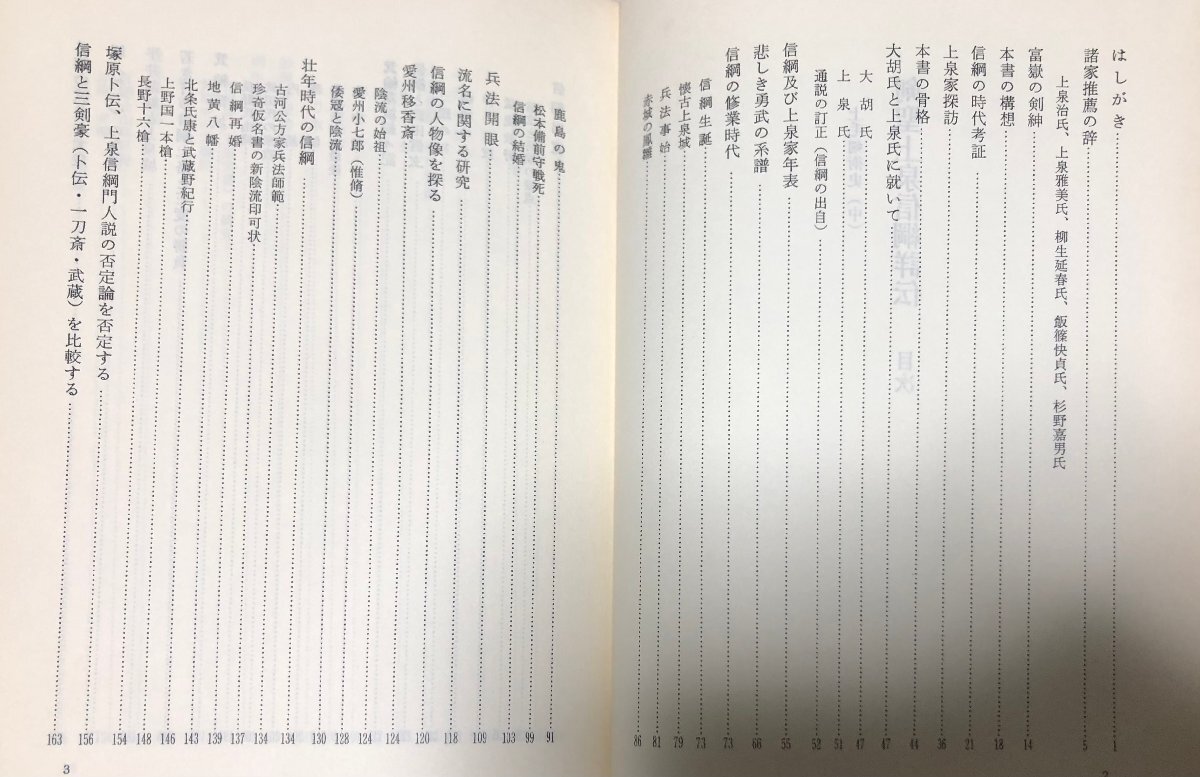 はしがき……1
諸家推薦の辞……5
上泉治氏、上泉雅美氏、柳生延春氏、飯篠快貞氏、杉野嘉男氏
富嶽の剣紳……14
本書の構想……18
信綱の時代考証……21
上泉家探訪……36
本書の骨格……44
大胡氏と上泉氏に就いて……47
大胡氏……47
上泉氏……51
通説の訂正（信綱の出自）……52
信綱及び上泉家年表……55
悲しき勇武の系譜……66
信綱の修業時代……73
信綱生誕……73
懐古上泉城……79
兵法事始……81
赤城の鳳雛……86
鹿島の鬼……91
松本備前守戦死……99
信綱の結婚……103
兵法開眼……109
流名に関する研究……118
信綱の人物像を探る……120
愛州移香斎……124
陰流の始祖……124
愛州小七郎（惟脩）……128
倭寇と陰流……130
壮年時代の信綱……134
古河公方家兵法師範……134
珍奇仮名書の新陰流印可状……137
信綱再婚……139
地黄八幡……143
北条氏康と武蔵野紀行……146
上野国一本槍……148
長野十六槍……154
塚原卜伝、上泉信綱門人説の否定論を否定する……156
信綱と三剣豪（卜伝・一刀斎・武蔵）を比較する……163
3